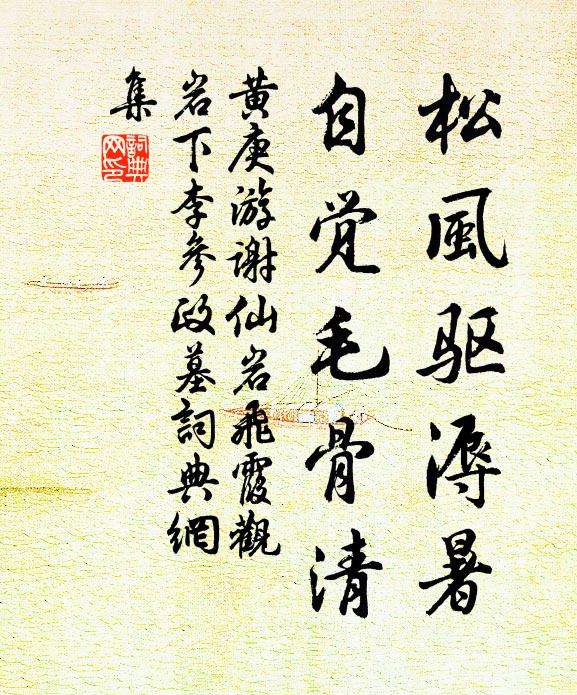 松風驱溽暑
自觉毛骨清
黄庚游谢仙岩飛霞觀
岩下李參政墓詞典網
集
詞典網印